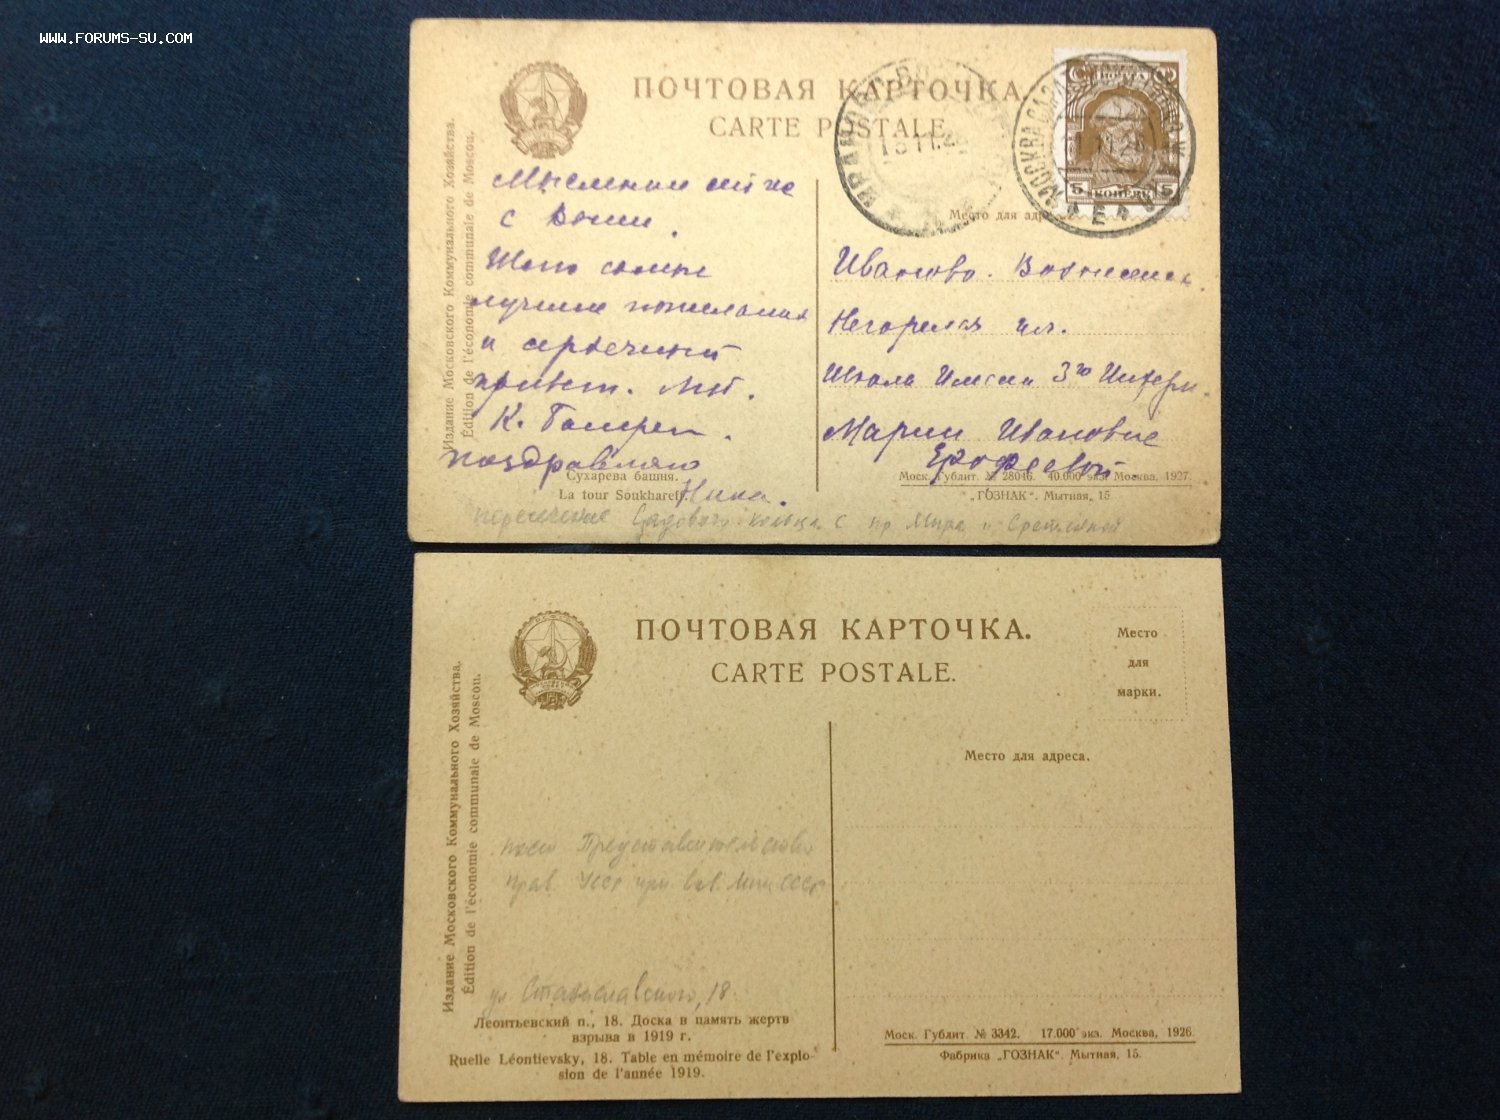 WWW.FORUMS-SU.COM
ПОЧТОВАЯ КАРТОЧКА.
CARTE POSTALE.
Издание Московского Коммунального Хозяйства.
Édition de l'économie communale de Moscou.
Мысленно
с Вами.
Шлю
лучшие пожелания
и сердечный
привет.
К.
поздравляю
Нина.
Сухарева башня.
La tour Soukhareff.
МОСКВА
5 5
КОПЕЕК
Место для адреса
Иваново. Вознесенск.
Негорелая ул.
Школа Имени 3го Интерн.
Марии Ивановне
Ерофеевой.
Моск. Гублит. № 28046. 40.000 экз. Москва, 1927.
„ГОЗНАК“. Мытная, 15.
пересечение Садового кольца с пр Мира и Сретенкой
ПОЧТОВАЯ КАРТОЧКА.
CARTE POSTALE.
Место
для
марки.
Место для адреса.
Издание Московского Коммунального Хозяйства.
Édition de l'économie communale de Moscou.
Представительство
Прав. УССР при Сов. Мин СССР
ул Станиславского, 18
Леонтьевский п., 18. Доска в память жертв
взрыва в 1919 г.
Ruelle Léontievsky, 18. Table en mémoire de l'explo-
sion de l'année 1919.
Моск. Гублит. № 3342. 17.000 экз. Москва, 1926.
Фабрика „ГОЗНАК“. Мытная, 15.